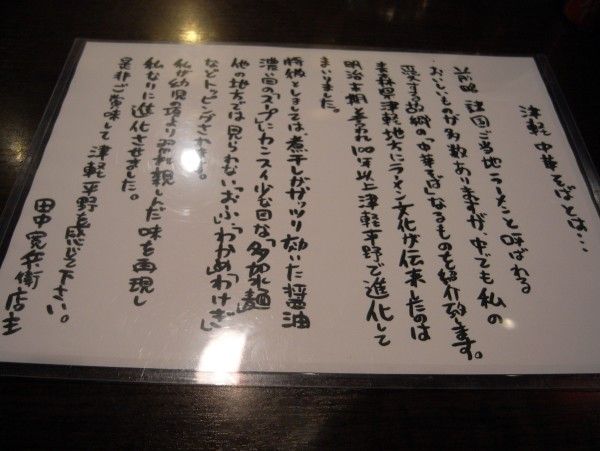 津軽中華そばとは…
前略 全国ご当地ラーメンと呼ばわる
おいしいものが多数ありますが、中でも私の
愛する故郷の「中華そば」なるものを紹介致します。
青森県津軽地方にラーメン文化が伝来したのは
明治末期と言われ100年以上津軽平野で進化して
まいりました。
特徴としましては、煮干しがガッツリ効いた醤油
濃い目のスープにカンスイ少な目な「多加水麺」
他の地方では見られない「おふ」「わかめ」「わけぎ」
などトッピングされます。
私が幼児の頃より慣れ親しんだ味を再現し
私なりに進化させました。
是非ご賞味して津軽平野を感じて下さい。
田中 兵衛 店主